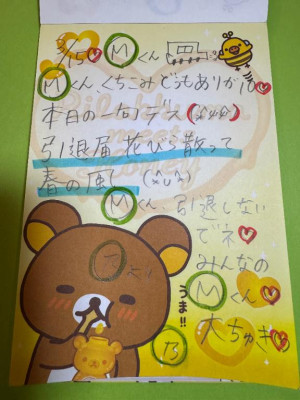 Mくん
Mくん くちこみ どうもありがと♡
本日の一句デス
引退届 花びら散って
春の風
Mくん、引退しない
でネ♡
みんなの
Mくん♡
大ちゅき♡
うま!!
乃